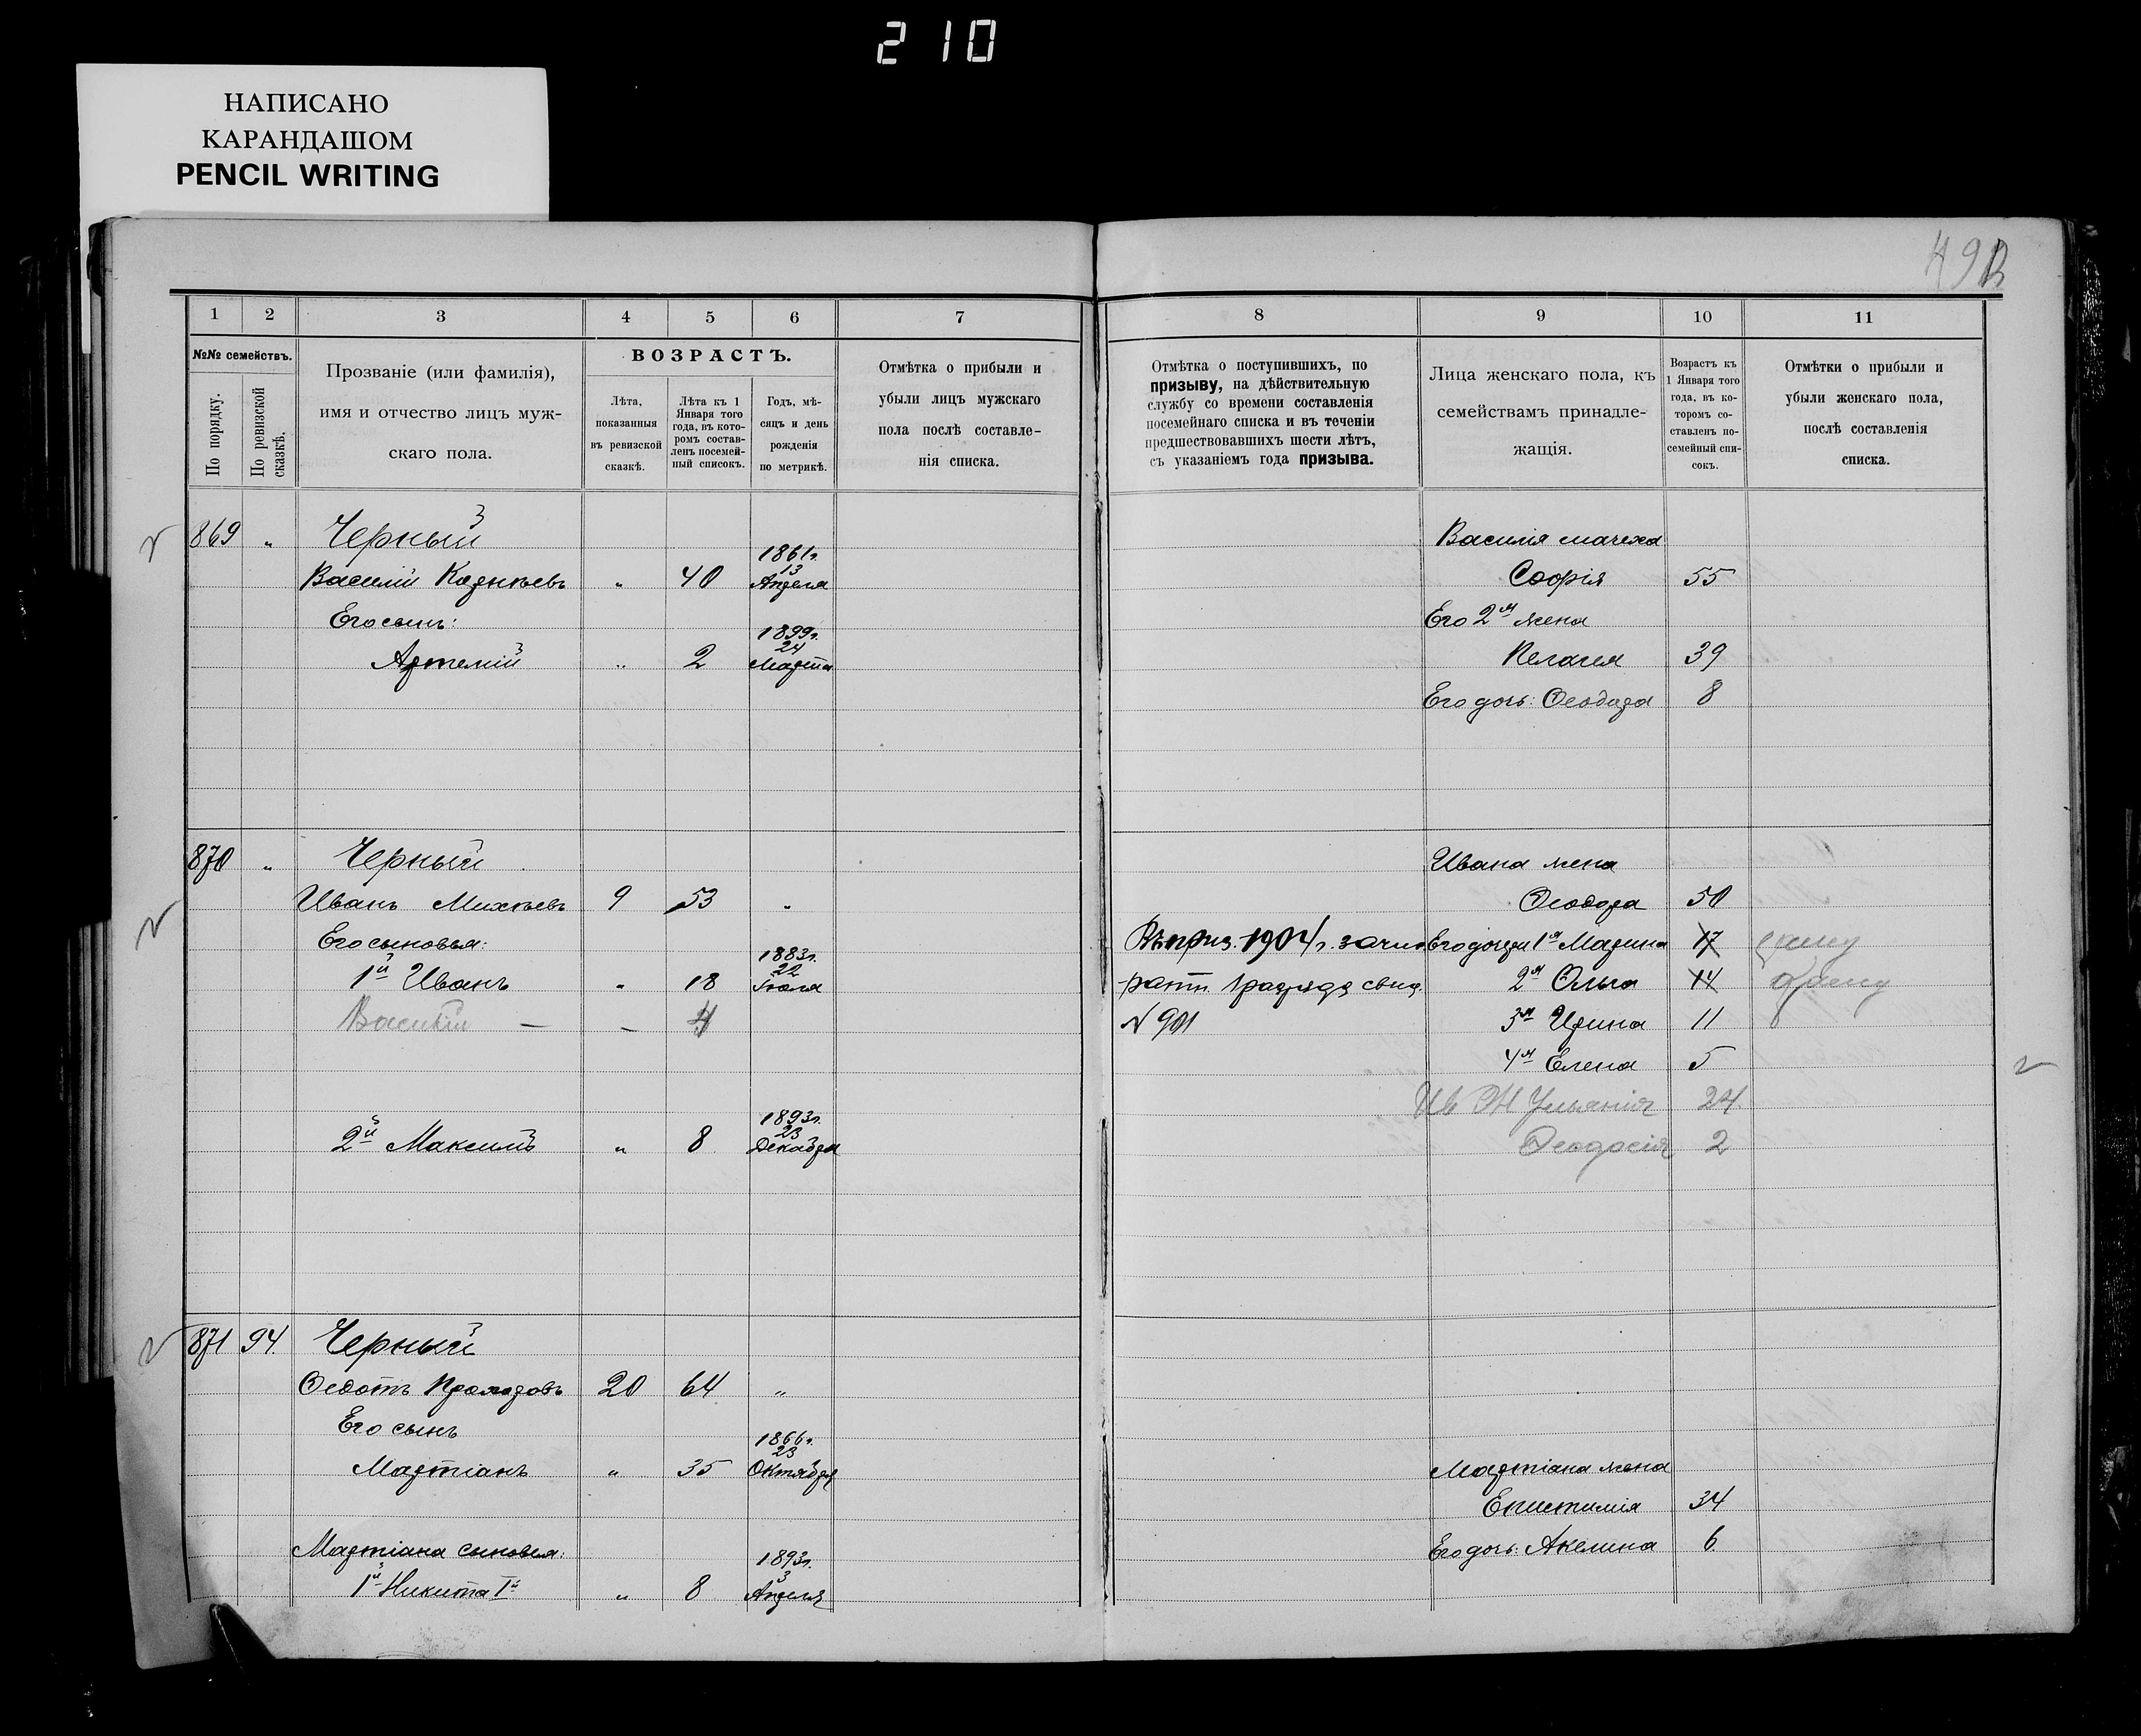 210
НАПИСАНО
КАРАНДАШОМ
PENCIL WRITING
1
2
3
4
5
6
7
№№ семействъ.
По порядку.
По ревизской сказкѣ.
Прозваніе (или фамилія),
имя и отчество лицъ муж-
скаго пола.
ВОЗРАСТЪ.
Лѣта,
показанныя
въ ревизской
сказкѣ.
Лѣта къ 1
Января того
года, въ кото-
ромъ состав-
ленъ посемей-
ный списокъ.
Годъ, мѣ-
сяцъ и день
рожденія
по метрикѣ.
Отмѣтка о прибыли и
убыли лицъ мужскаго
пола послѣ составле-
нія списка.
869 „ Черный
1861г.
13
Василій „ 40 Апреля
Его сынъ:
1899г.
24
Артемій „ 2 Марта
870 „ Черный
Иванъ Михѣевъ 9 53 „
Его сыновья:
1883г.
22
1й Иванъ „ 18 Іюля
Василій — — 4
1893г.
23
2й Максимъ „ 8 Декабря
871 94 Черный
Ѳедотъ 20 64 „
Его сынъ
1866г.
23
Мартіанъ „ 35 Октября
Мартіана сыновья:
1893г.
3
1й Никита 1й „ 8 Апреля
8
9
10
11
Отмѣтка о поступившихъ, по
призыву, на дѣйствительную
службу со времени составленія
посемейнаго списка и въ теченіи
предшествовавшихъ шести лѣтъ,
съ указаніемъ года призыва.
Лица женскаго пола, къ
семействамъ принадле-
жащія.
Возрастъ къ
1 Января того
года, въ ко-
торомъ со-
ставленъ по-
семейный спи-
сокъ.
Отмѣтки о прибыли и
убыли женскаго пола,
послѣ составленія
списка.
Василія мачеха
Софія 55
Его 2я жена
Пелагея 39
Его дочь: Ѳеодора 8
Ивана жена
Ѳеодора 50
Въ приз. 1904 г. зачис. Его дочери 1я Марина 17
ратн. 1 разряда свид. 2я Ольга 14
№ 901 3я Ирина 11
4я Елена 5
Ив Ж Ульянія 24
Ѳеодосія 2
Мартіана жена
Епистимія 34
Его дочь: Акелина 6